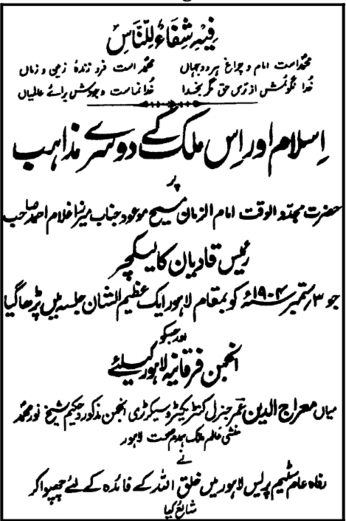 فِيْهِ شِفَاءٌ لِّلنَّاسِ
محمدؐ است امام و چراغ ہر دو جہاں محمدؐ است فروزندۂ زمین و زماں
خدا نگوئمش از ترس حق مگر بخدا خدا نماست وجودش برائے عالمیاں
اسلام اور اس ملک کے دوسرے مذاہب
پر
حضرت مجدّد الوقت امام الزمان مسیح موعود جناب میرزا غلام احمد صاحب
رئیس قادیان کا لیکچر
جو ۳ ستمبر ۱۹۰۴ء کو بمقام لاہور ایک عظیم الشان جلسہ میں پڑھا گیا
اور جسکو
انجمن فرقانیہ لاہور کیلئے
میاں معراج الدین عمر جنرل کنٹریکٹر و سیکرٹری انجمن مذکور و حکیم شیخ نور محمد
منشی عالم مالک ہمدم صحت لاہور
نے
رفاہ عام سٹیم پریس لاہور میں خلق اللہ کے فائدہ کے لئے چھپوا کر
شائع کیا